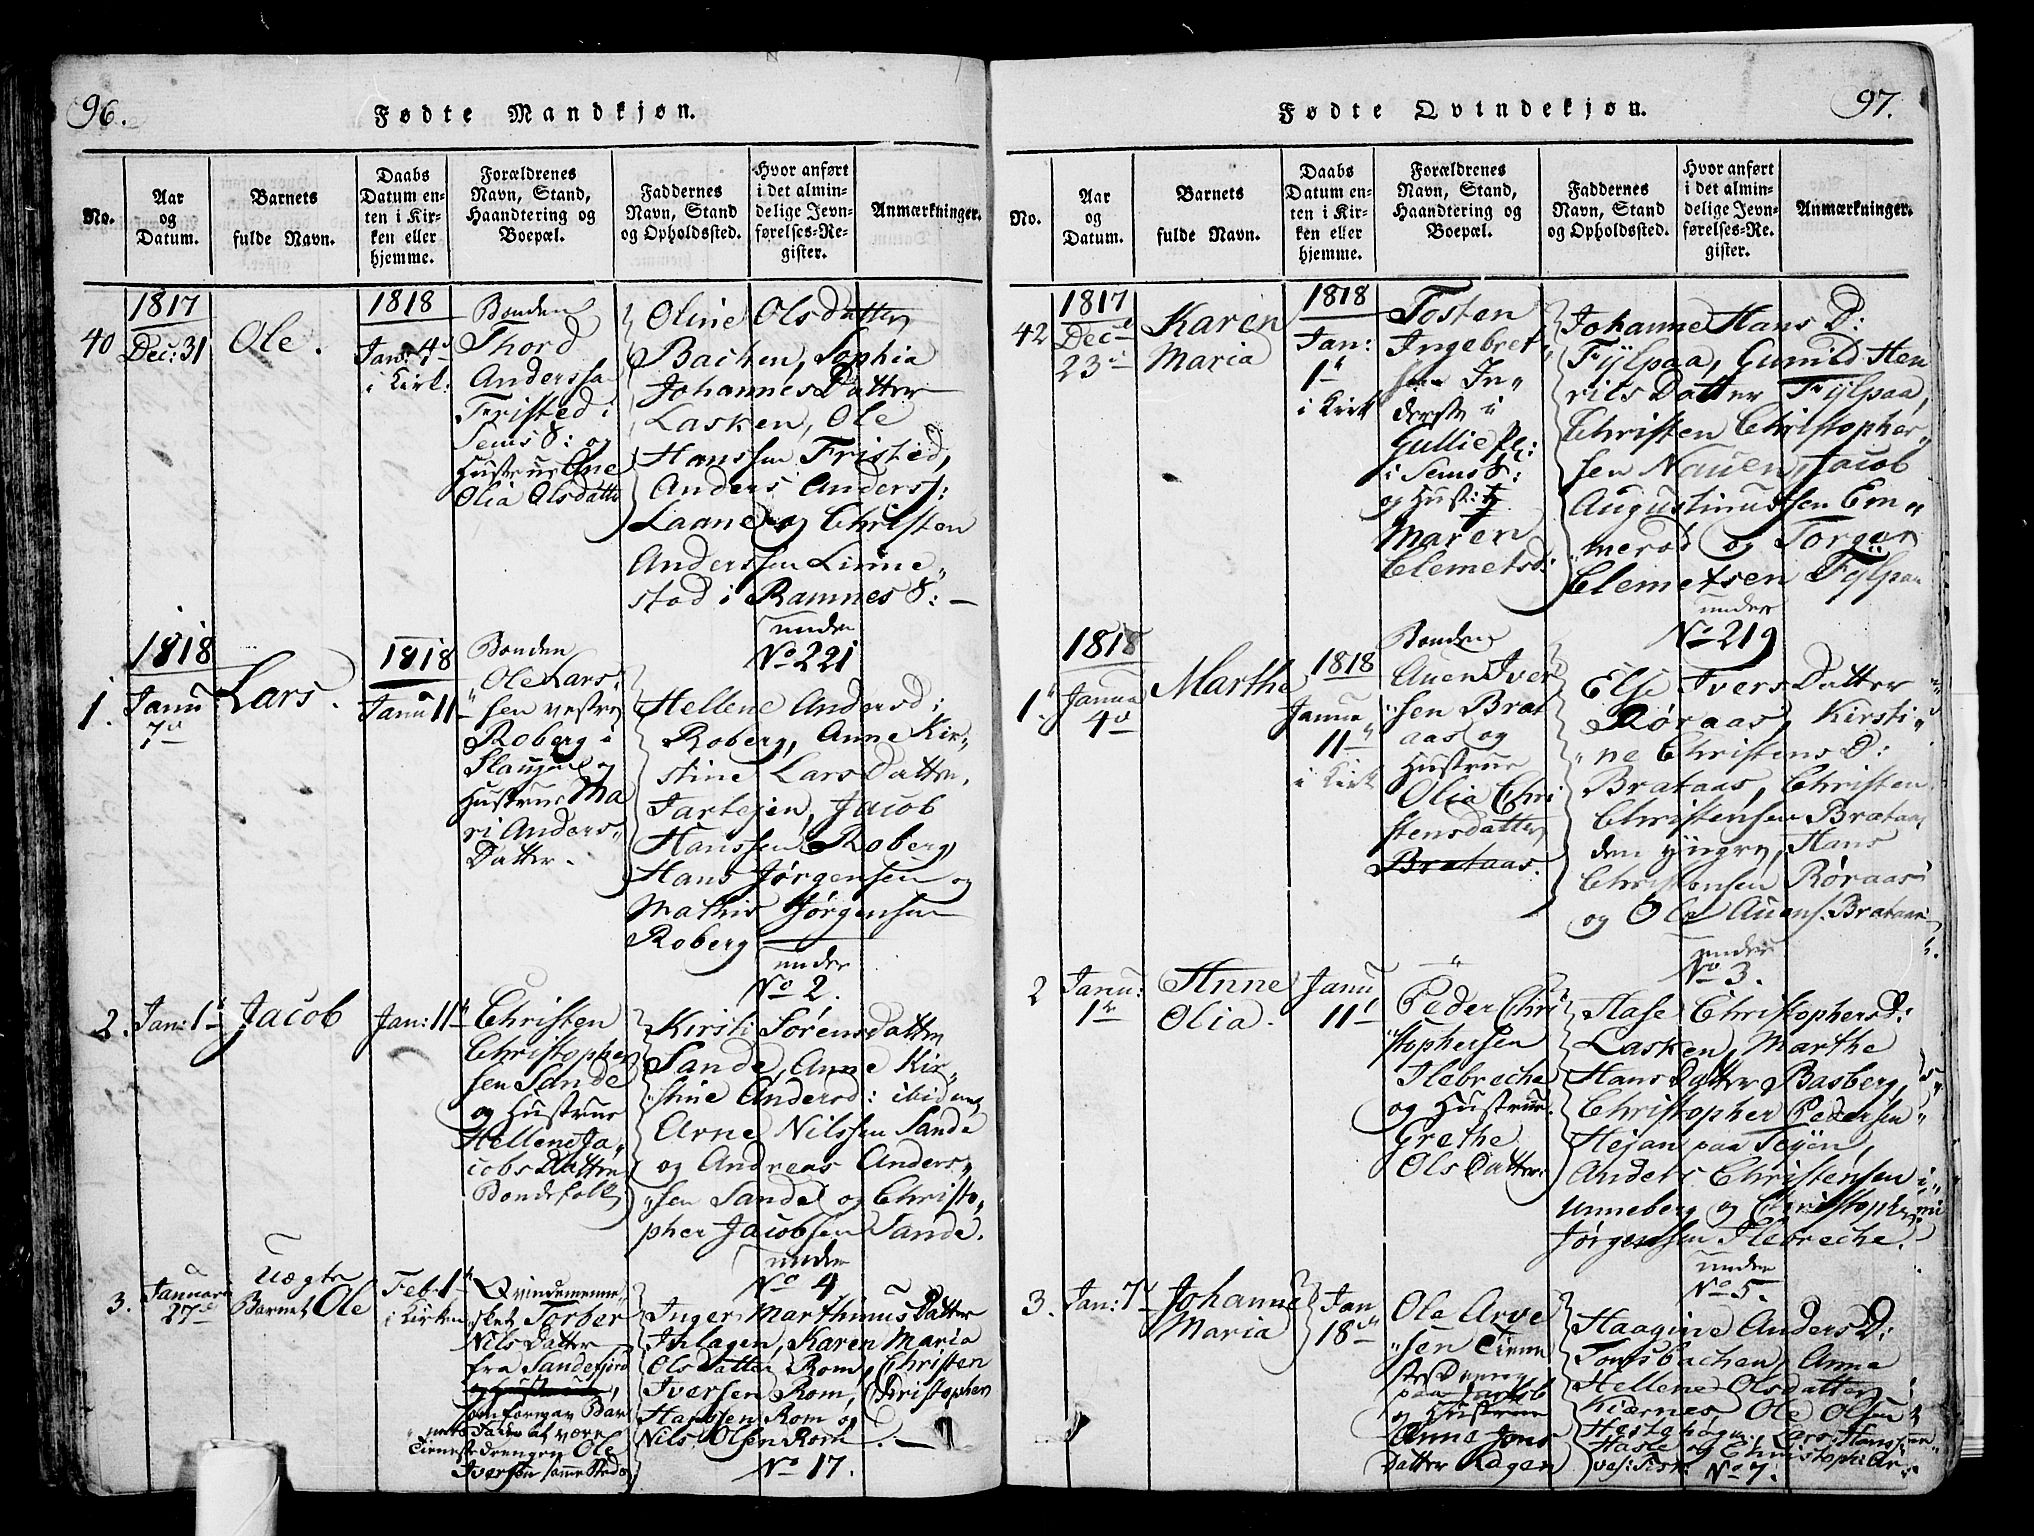 96.
Fødte Mandkjøn.
No.
Aar
og
Datum.
Barnets
fulde Navn.
Daabs
Datum en-
ten i Kir-
ken eller
hjemme.
Forældrenes
Navn, Stand,
Haandtering og
Boepæl.
Faddernes
Navn, Stand
og Opholdssted.
Hvor anført
i det almin-
delige Jevn-
førelses-Re-
gister.
Anmærkninger.
40
1817
Dec: 31
Ole.
1818
Jan: 4d
i Kirk:
Bonden
Thord
Anderssen
Fristed i
Sems S: og
Hustrue Ane
Olia Olsdatter
Oline Olsdatter
Bachen, Sophia
Johannes Datter
Lasken, Ole
Hanssen Fristed,
Anders Anderss:
Laane og Christen
Anderssen Linne„
stad i Ramnes S: —
under
No 221
1.
1818
Janu
7d
Lars.
1818
Janu 11
Bonden
Ole Lars„
sen vestre
Roberg i
Slaugen og
Hustrue Ma
ri Anders„
Datter.
Hellene Andersd:
Roberg, Anne Kir„
stine Lars Datter,
Jarteien, Jacob
Hanssen Roberg,
Hans Jørgensen og
Mathis Jørgensen
Roberg
under
No 2.
2.
Jan: 1
Jacob
Jan: 11
Christen
Christopher
sen Sande
og Hustrue
Hellene Ja„
cobs Datter
Bondefolk
Kirsti Sørens Datter
Sande, Anne Kir„
stine Andersd: ibidem,
Arne Nilssen Sande
og Andreas Anders„
sen Sande og Christo„
pher Jacobsen Sande.
under
No 4
3.
Januari
27d
Uægte
Barnet Ole
Feb: 1
i Kirken
Qvindemenne„
sket Torber
Nils Datter
fra Sandefiord
og Hustrue,
som
Fader at være
Tieneste drengen Ole
Iversen samme Sted
Inger Marthinus Datter
Ihlagen, Karen Maria
Ols Datter Rom, Christen
Iversen Rom, Christopher
Hanssen Rom og
Nils Olsen Rom.
No 17.
97.
Fødte Qvindekjøn.
No.
Aar
og
Datum.
Barnets
fulde Navn.
Daabs
Datum en-
ten i Kir-
ken eller
hjemme.
Forældrenes
Navn, Stand,
Haandtering og
Boepæl.
Faddernes
Navn, Stand
og Opholdssted.
Hvor anført
i det almin-
delige Jevn-
førelses-Re-
gister.
Anmærkninger.
42
1817
Dec
23
Karen
Maria
1818
Jan:
1
i Kirk
Tosten
Ingebret„
sen In„
derste i
Gullie Pl:
i Sems S:
og Hust:
Maren
Clemetsd:
Johanne Hans D:
Fylpaa, Gunild Hen
riks Datter Fylpaa,
Christen Christopher„
sen Nauen, Jacob
Augustinussen Em„
merød og Torger
Clemetsen Fylpaa
under
No 219
1
1818
Janua
4d
Marthe
1818
Janua
11
i Kirk
Bonden
Auen Iver
sen Brat
aas og
Hustrue
Olia Chri
stensdatter
Brataas.
Else Ivers Datter
Røraas, Kirsti„
ne Christens D:
Brataas, Christen
Christensen Brataas
den yngre, Hans
Christensen Røraas
og Ole Auens: Brataas
under
No 3.
2
Janu:
1
Anne
Olia.
Janu
11
Peder Chri
stophersen
Ilebreche
og Hustrue
Grethe
Ols Datter
Aase Christophersd:
Lasken, Marthe
Hans Datter Basberg,
Christopher Pedersen
Hejan paa Teÿen,
Anders Christensen i
Unneberg og Christopher
Jørgensen Ilebreche.
under
No 5.
3.
Jan: 7
Johanne
Maria
Jan
18
Ole Arve
sen Tiene
ste Dreng
paa Jarlsb
og Hustrue
Anne Jons
Datter Hagen
Haagine Anders D:
Tonsbachen, Anne
Hellene Olsdatter
Kiærnes Ole Olsen
Hestehøgen, Lars Hanssen
Hasle og Christoph: Ar„
No 7.